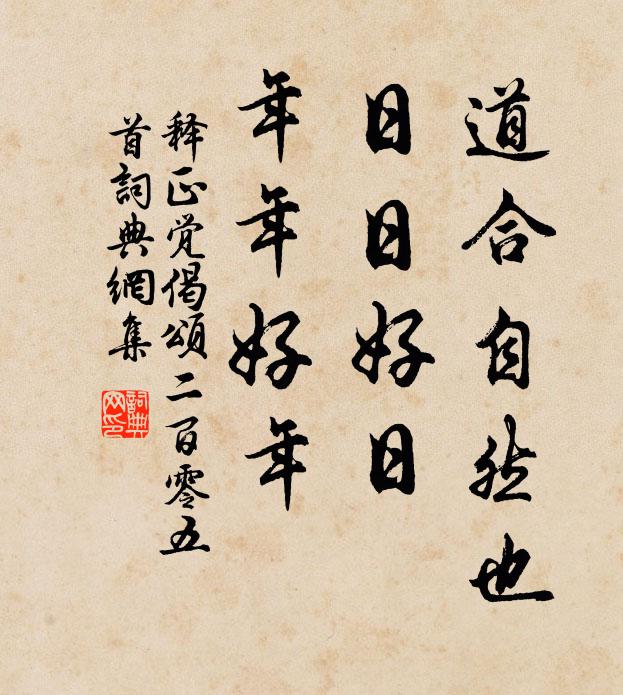 道合自然也
日日好日
年年好年
释正觉偈頌二百零五
首詞典網集
詞典网印